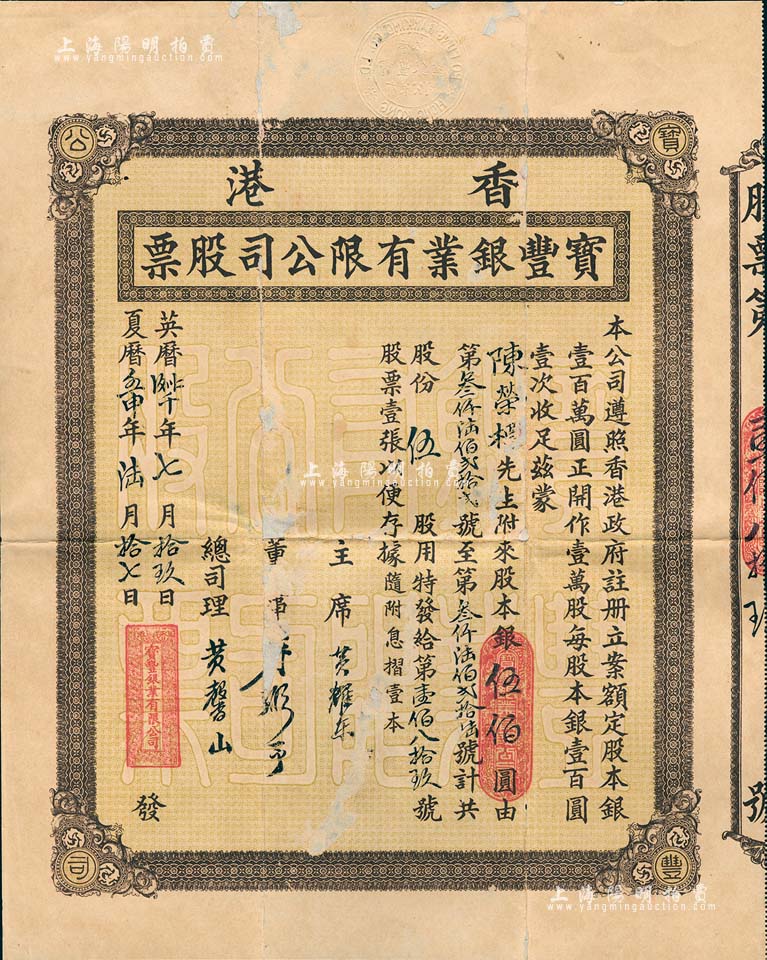 上海陽明拍賣
www.yangmingauction.com
上海陽明拍賣
www.yangmingauction.com
寶
豐
公
司
香港
寶豐銀業有限公司股票
本公司遵照香港政府註册立案額定股本銀
壹百萬圓正開作壹萬股每股本銀壹百圓
壹次收足茲蒙
陳榮 先生附來股本銀伍佰圓由
第叁仟陆佰弍拾弍號至第叁仟陆佰弍拾陆號計共
股份伍股用特發給第壹佰八拾玖號
股票壹張以便存據隨附息摺壹本
主席
董事
總司理 黄馨山
英曆 年七月拾玖日
夏曆 申年陆月拾七日
發
寶豐銀業有限公司
上海陽明拍賣
www.yangmingauction.com
股票第
號
上海陽明拍賣
www.yangmingauction.com